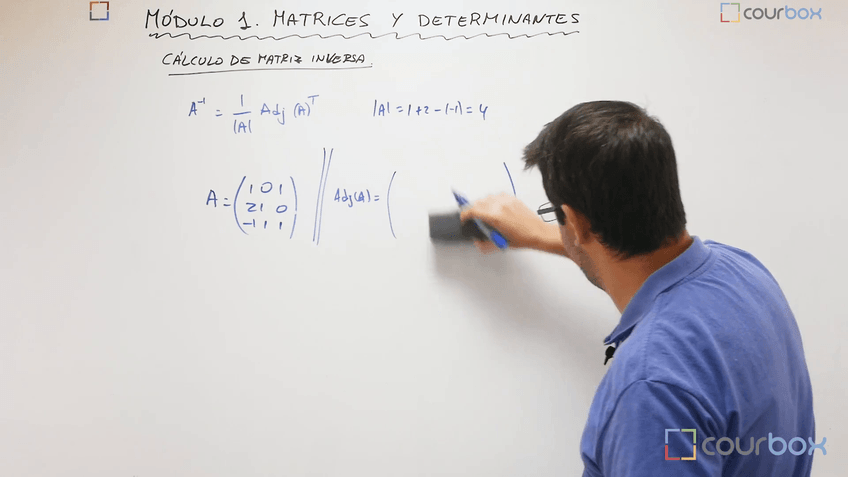 MÓDULO 1. MATRICES Y DETERMINANTES
courbox
CÁLCULO DE MATRIZ INVERSA.
A⁻¹ = 1/|A| Adj (A)ᵀ
|A| = 1+2-(-1) = 4
A = (1 0 1
2 1 0
-1 1 1)
Adj(A) = (
courbox